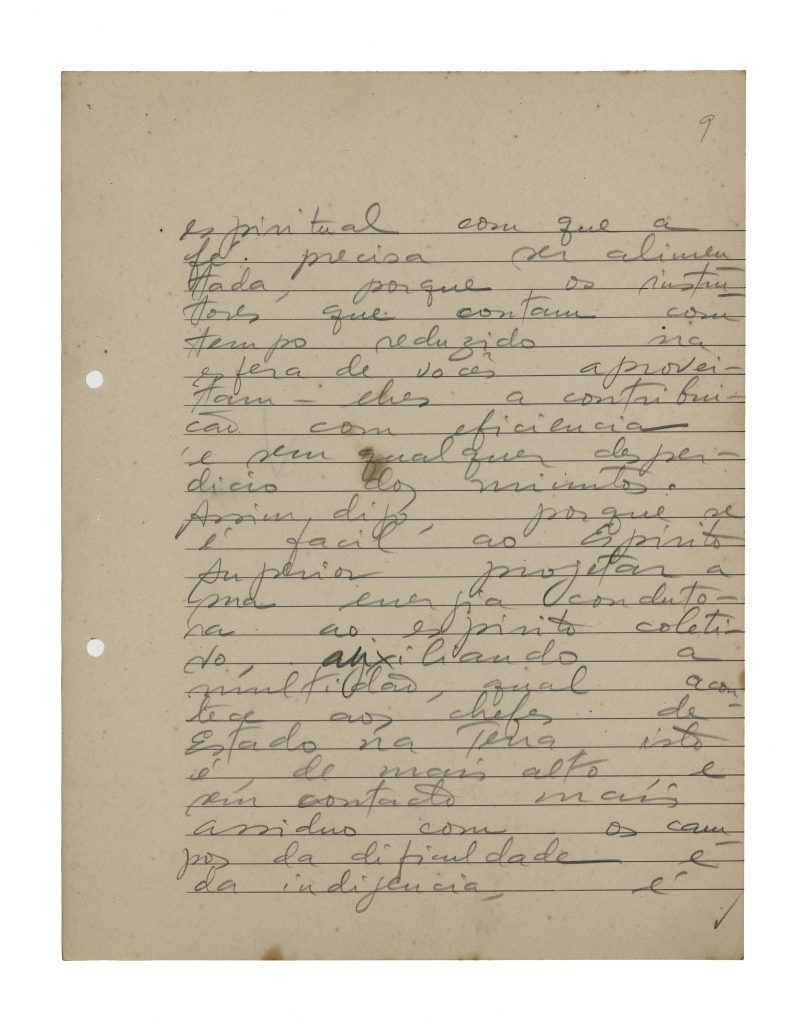 9
espiritual com que a
fé precisa ser alimen-
tada, porque os instru-
tores que contam com
tempo reduzido na
esfera de vocês aprovei-
tam-lhes a contribui-
cão com eficiencia
e sem qualquer desper-
dicio dos minutos.
Assim digo, porque se
é facil ao Espirito
Superior projetar a
sua energia conduto-
ra ao espirito coleti-
vo, auxiliando a
multidão, qual acon-
tece aos chefes de
Estado na Terra, isto
é, de mais alto, e
sem contacto mais
assiduo com os cam-
pos da dificuldade e
da indigencia, é